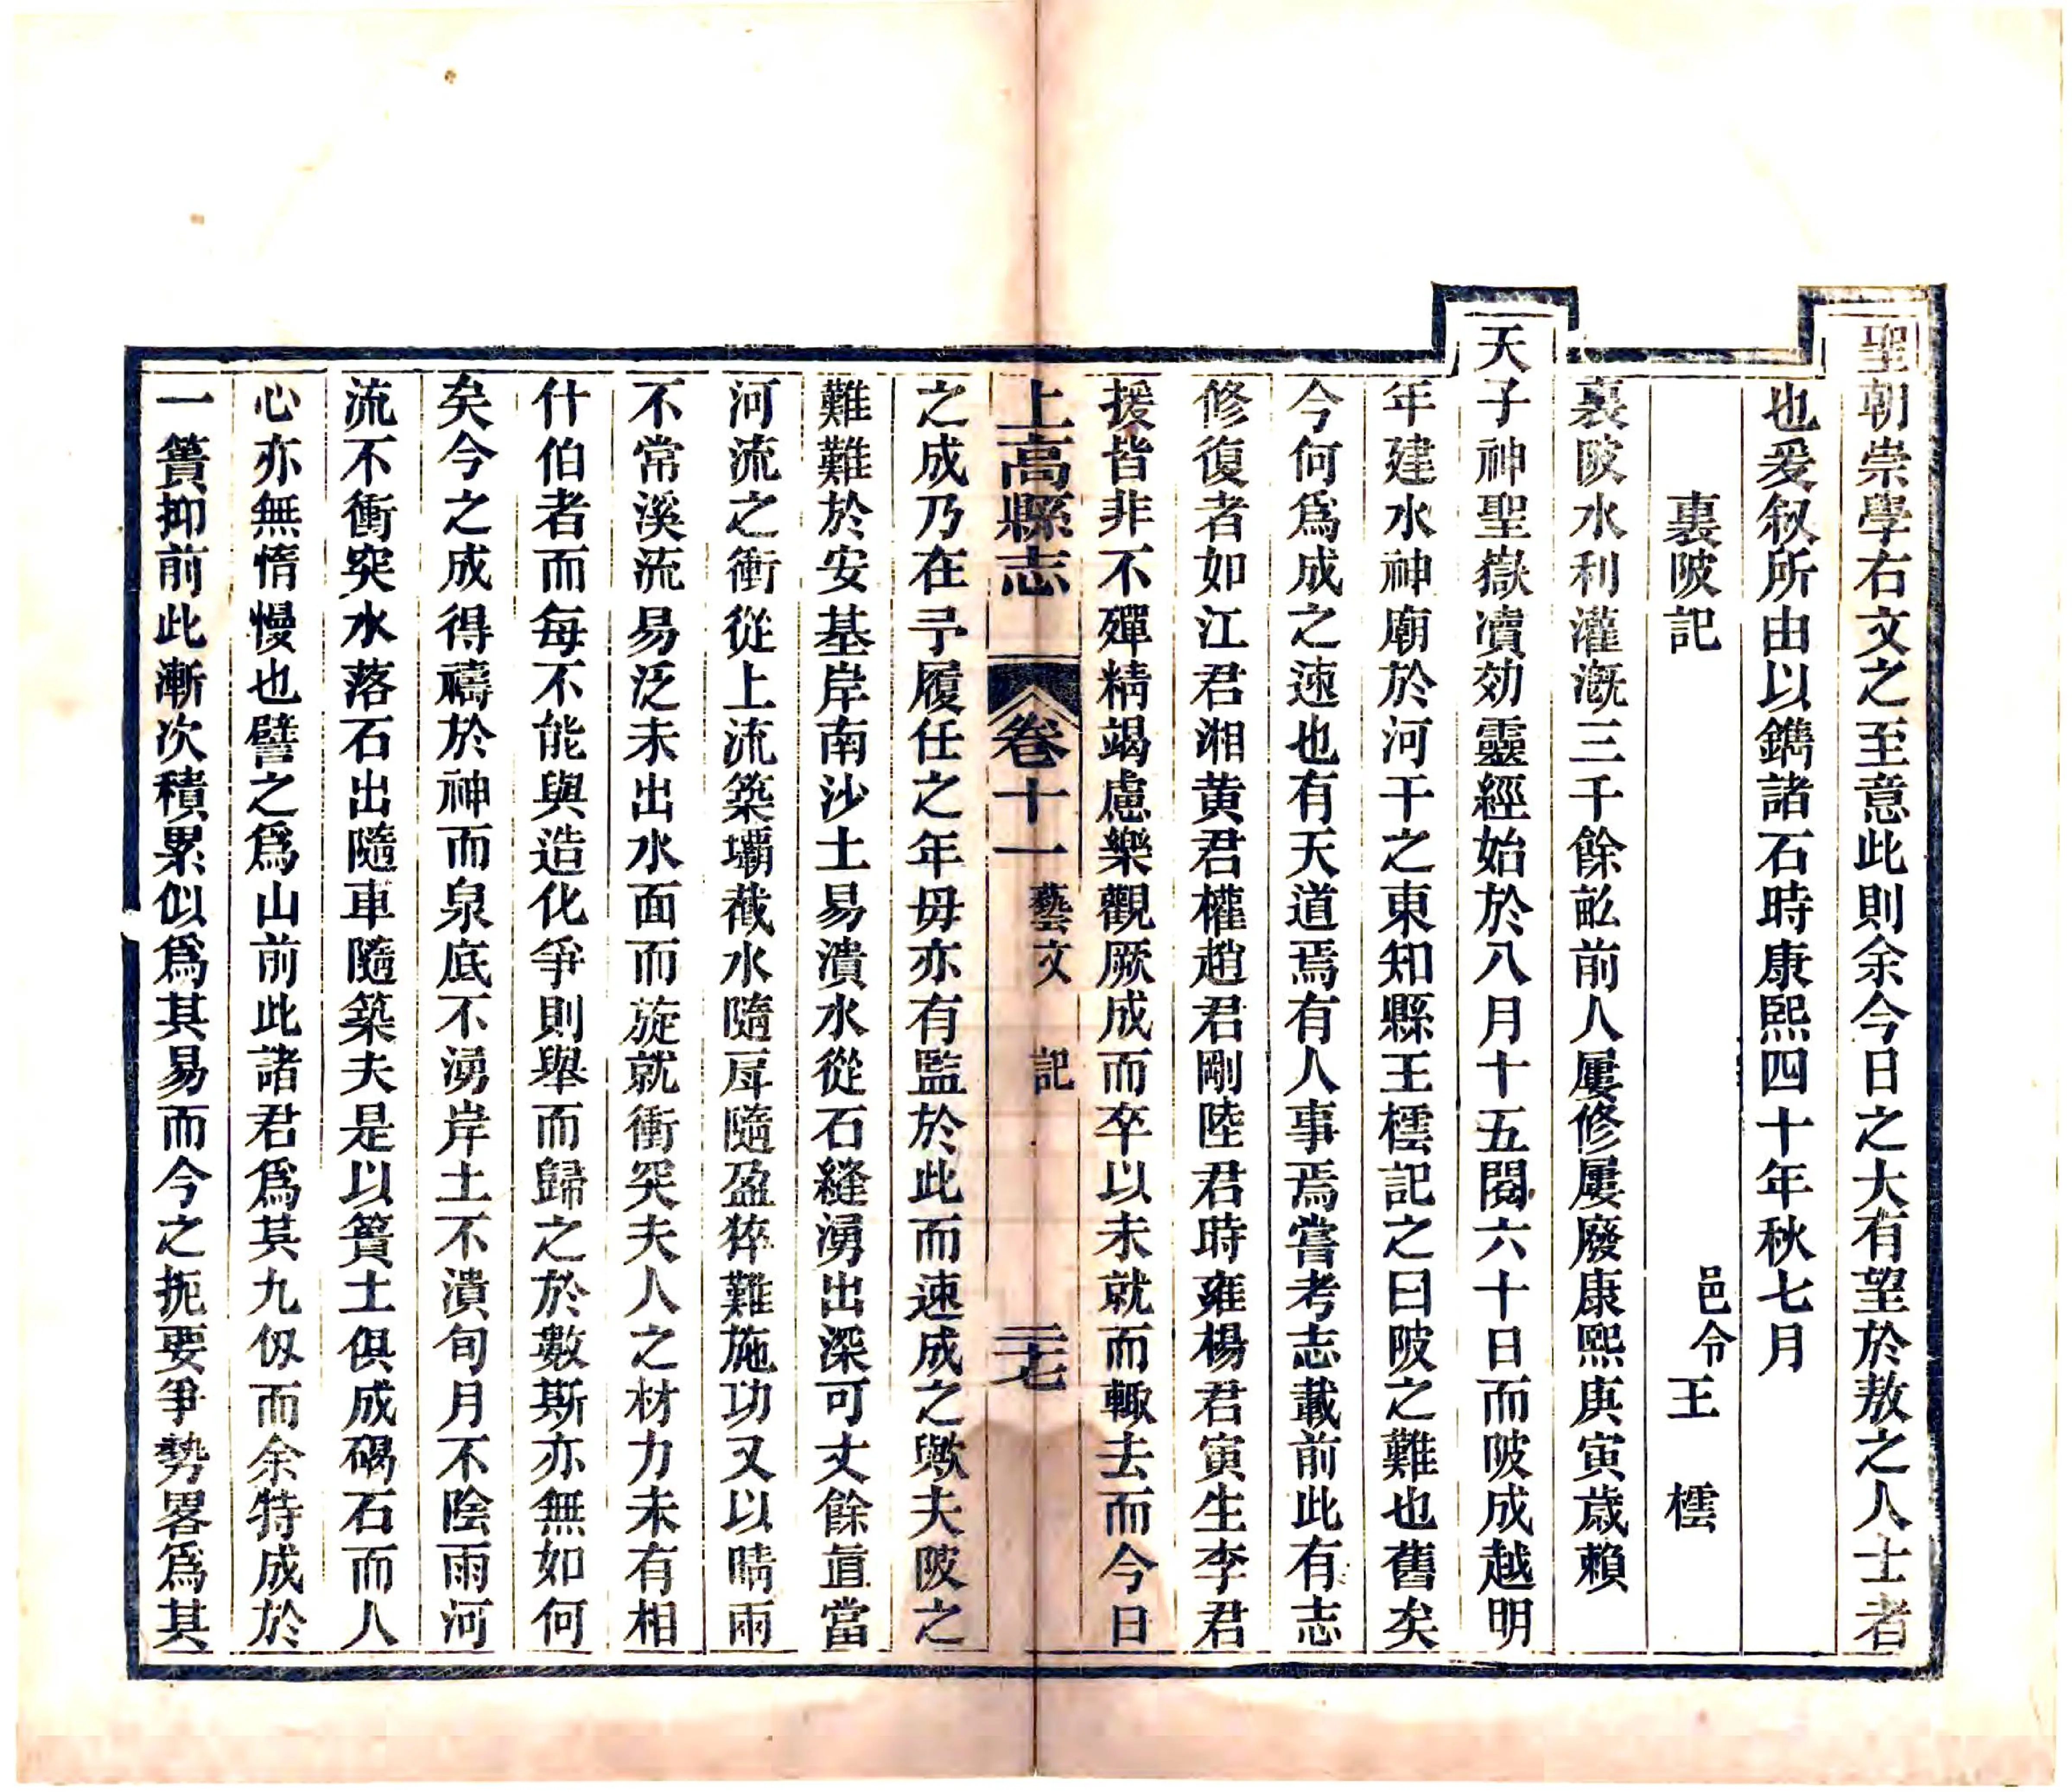 聖朝崇學右文之至意此則余今日之大有望於敖之人士者
也爰叙所由以鐫諸石時康熙四十年秋七月
裏陂記　邑令王　橒
裏陂水利灌漑三千餘畝前人屢修屢廢康熙庚寅歲賴
天子神聖嶽瀆効靈經始於八月十五閱六十日而陂成越明
年建水神廟於河干之東知縣王橒記之曰陂之難也舊矣
今何爲成之速也有天道焉有人事焉嘗考志載前此有志
修復者如江君湘黄君權趙君剛陸君時雍楊君寅生李君
援皆非不殫精竭慮樂觀厥成而卒以未就而輙去而今日
上高縣志　卷十一　藝文　記　二十七
之成乃在予履任之年毋亦有監於此而速成之歟夫陂之
難難於安基岸南沙土易潰水從石縫湧出深可丈餘直當
河流之衝從上流築壩截水隨戽隨盈猝難施功又以晴雨
不常溪流易泛未出水面而旋就衝突夫人之材力未有相
什伯者而每不能與造化爭則舉而歸之於數斯亦無如何
矣今之成得禱於神而泉底不湧岸土不潰旬月不陰雨河
流不衝突水落石出隨車隨築夫是以簣土俱成碣石而人
心亦無惰慢也譬之爲山前此諸君爲其九仭而余特成於
一簣抑前此漸次積累似爲其易而今之扼要爭勢畧爲其